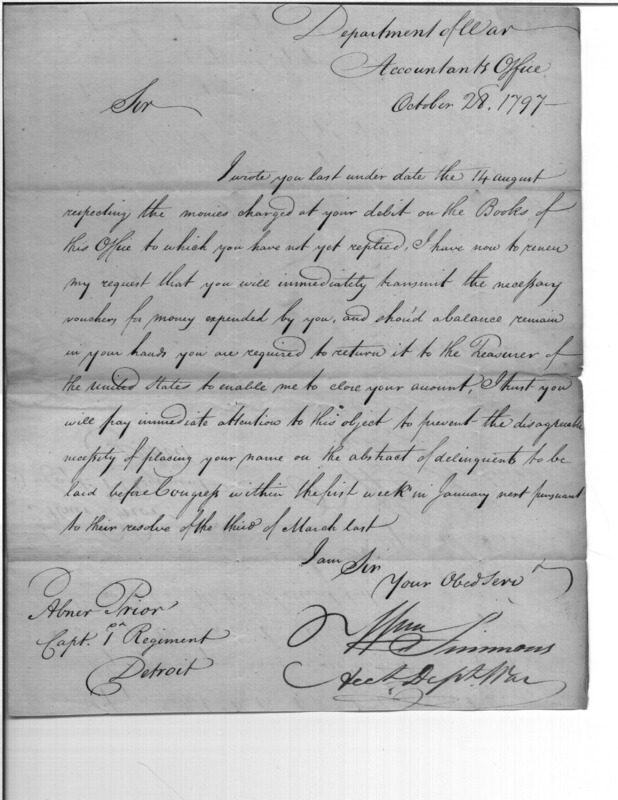 Department of War
Accountants Office
October 28. 1797
Sir
I wrote you last under date the 14 august
respecting the monies charged at your debit on the Books of
this Office to which you have not yet replied, I have now to renew
my request that you will immediately transmit the necessary
vouchers for money expended by you, and shou'd a balance remain
in your hands you are required to return it to the Treasurer of
the united States to enable me to close your account, I trust you
will pay immediate attention to this object to prevent the disagreeable
necessity of placing your name on the abstract of delinquents to be
laid before Congress within the first week in January next pursuant
to their resolve of the third of March last
I am Sir
Your Obed Serv
Abner Prior
Capt. 1 Regiment
Detroit
Wm Simmons
Acct. Dept. War